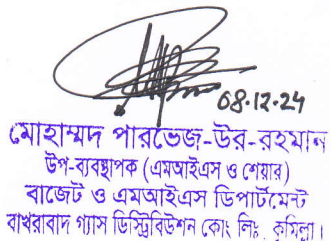 ০৪.১২.২৪
মোহাম্মদ পারভেজ-উর-রহমান
উপ-ব্যবস্থাপক (এমআইএস ও শেয়ার)
বাজেট ও এমআইএস ডিপার্টমেন্ট
বাখরাবাদ গ্যাস ডিস্ট্রিবিউশন কোং লিঃ, কুমিল্লা।